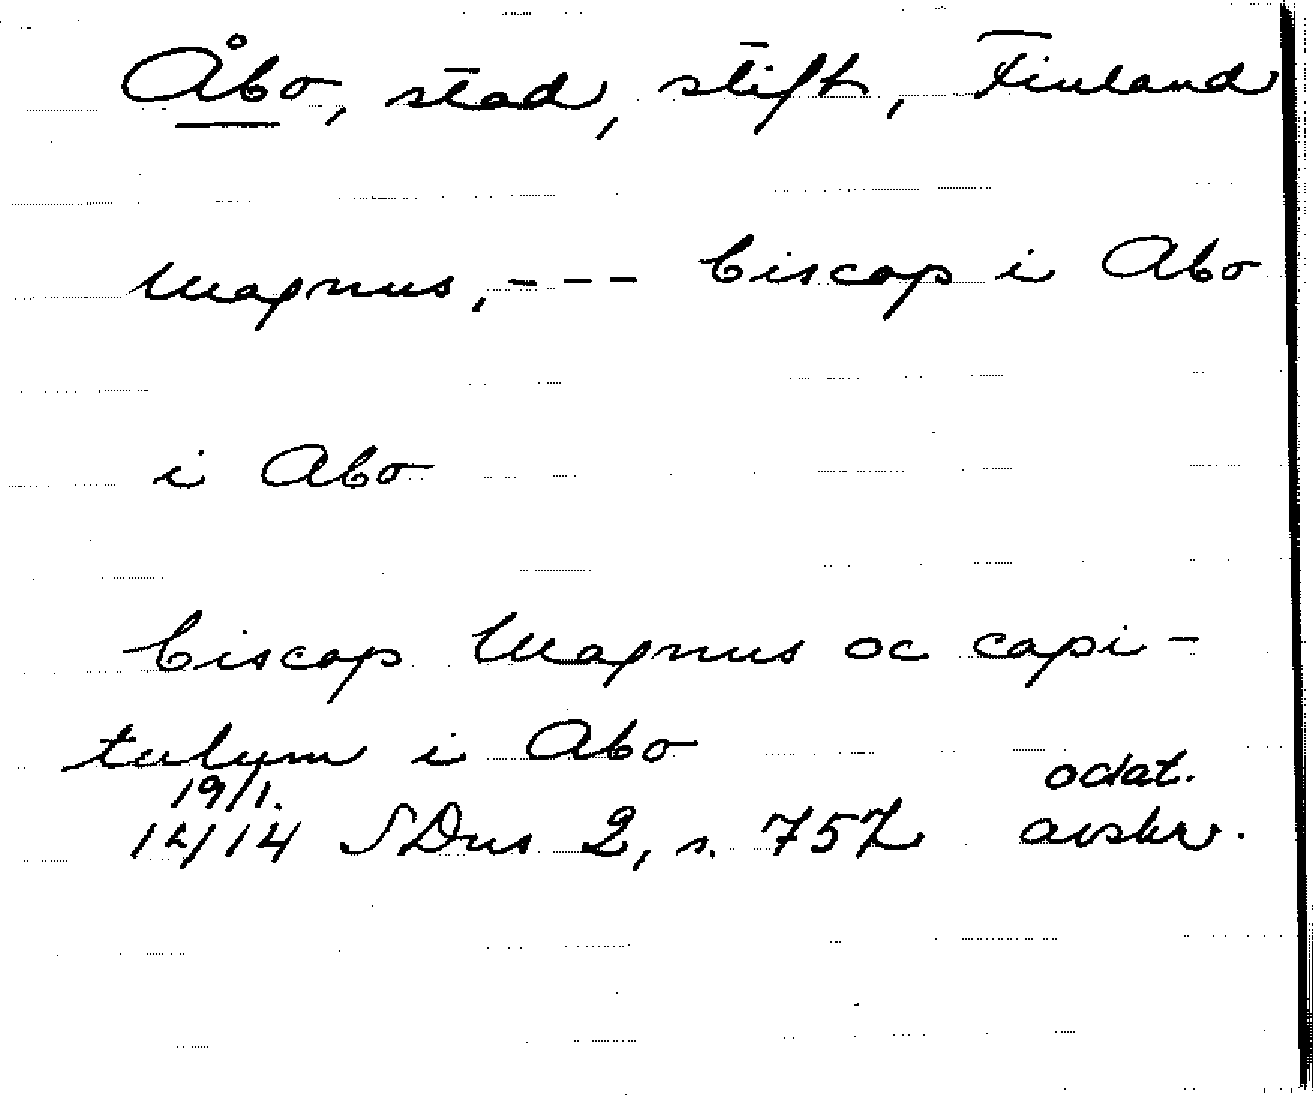 Åbo, stad, stift, Finland
Magnus, - - - biscop i Abo
i Abo
biscop Magnus oc capi-
tulum i Abo
19/1. odat.
1414 SDns 2, s. 757 avskr.